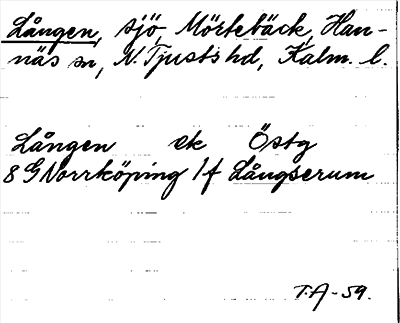 Lången, sjö, Mörtebäck, Han-
näs sn, N. Tjusts hd, Kalm. l.
Lången ek Östg
8 G Norrköping 1f Långserum
T.A-59.